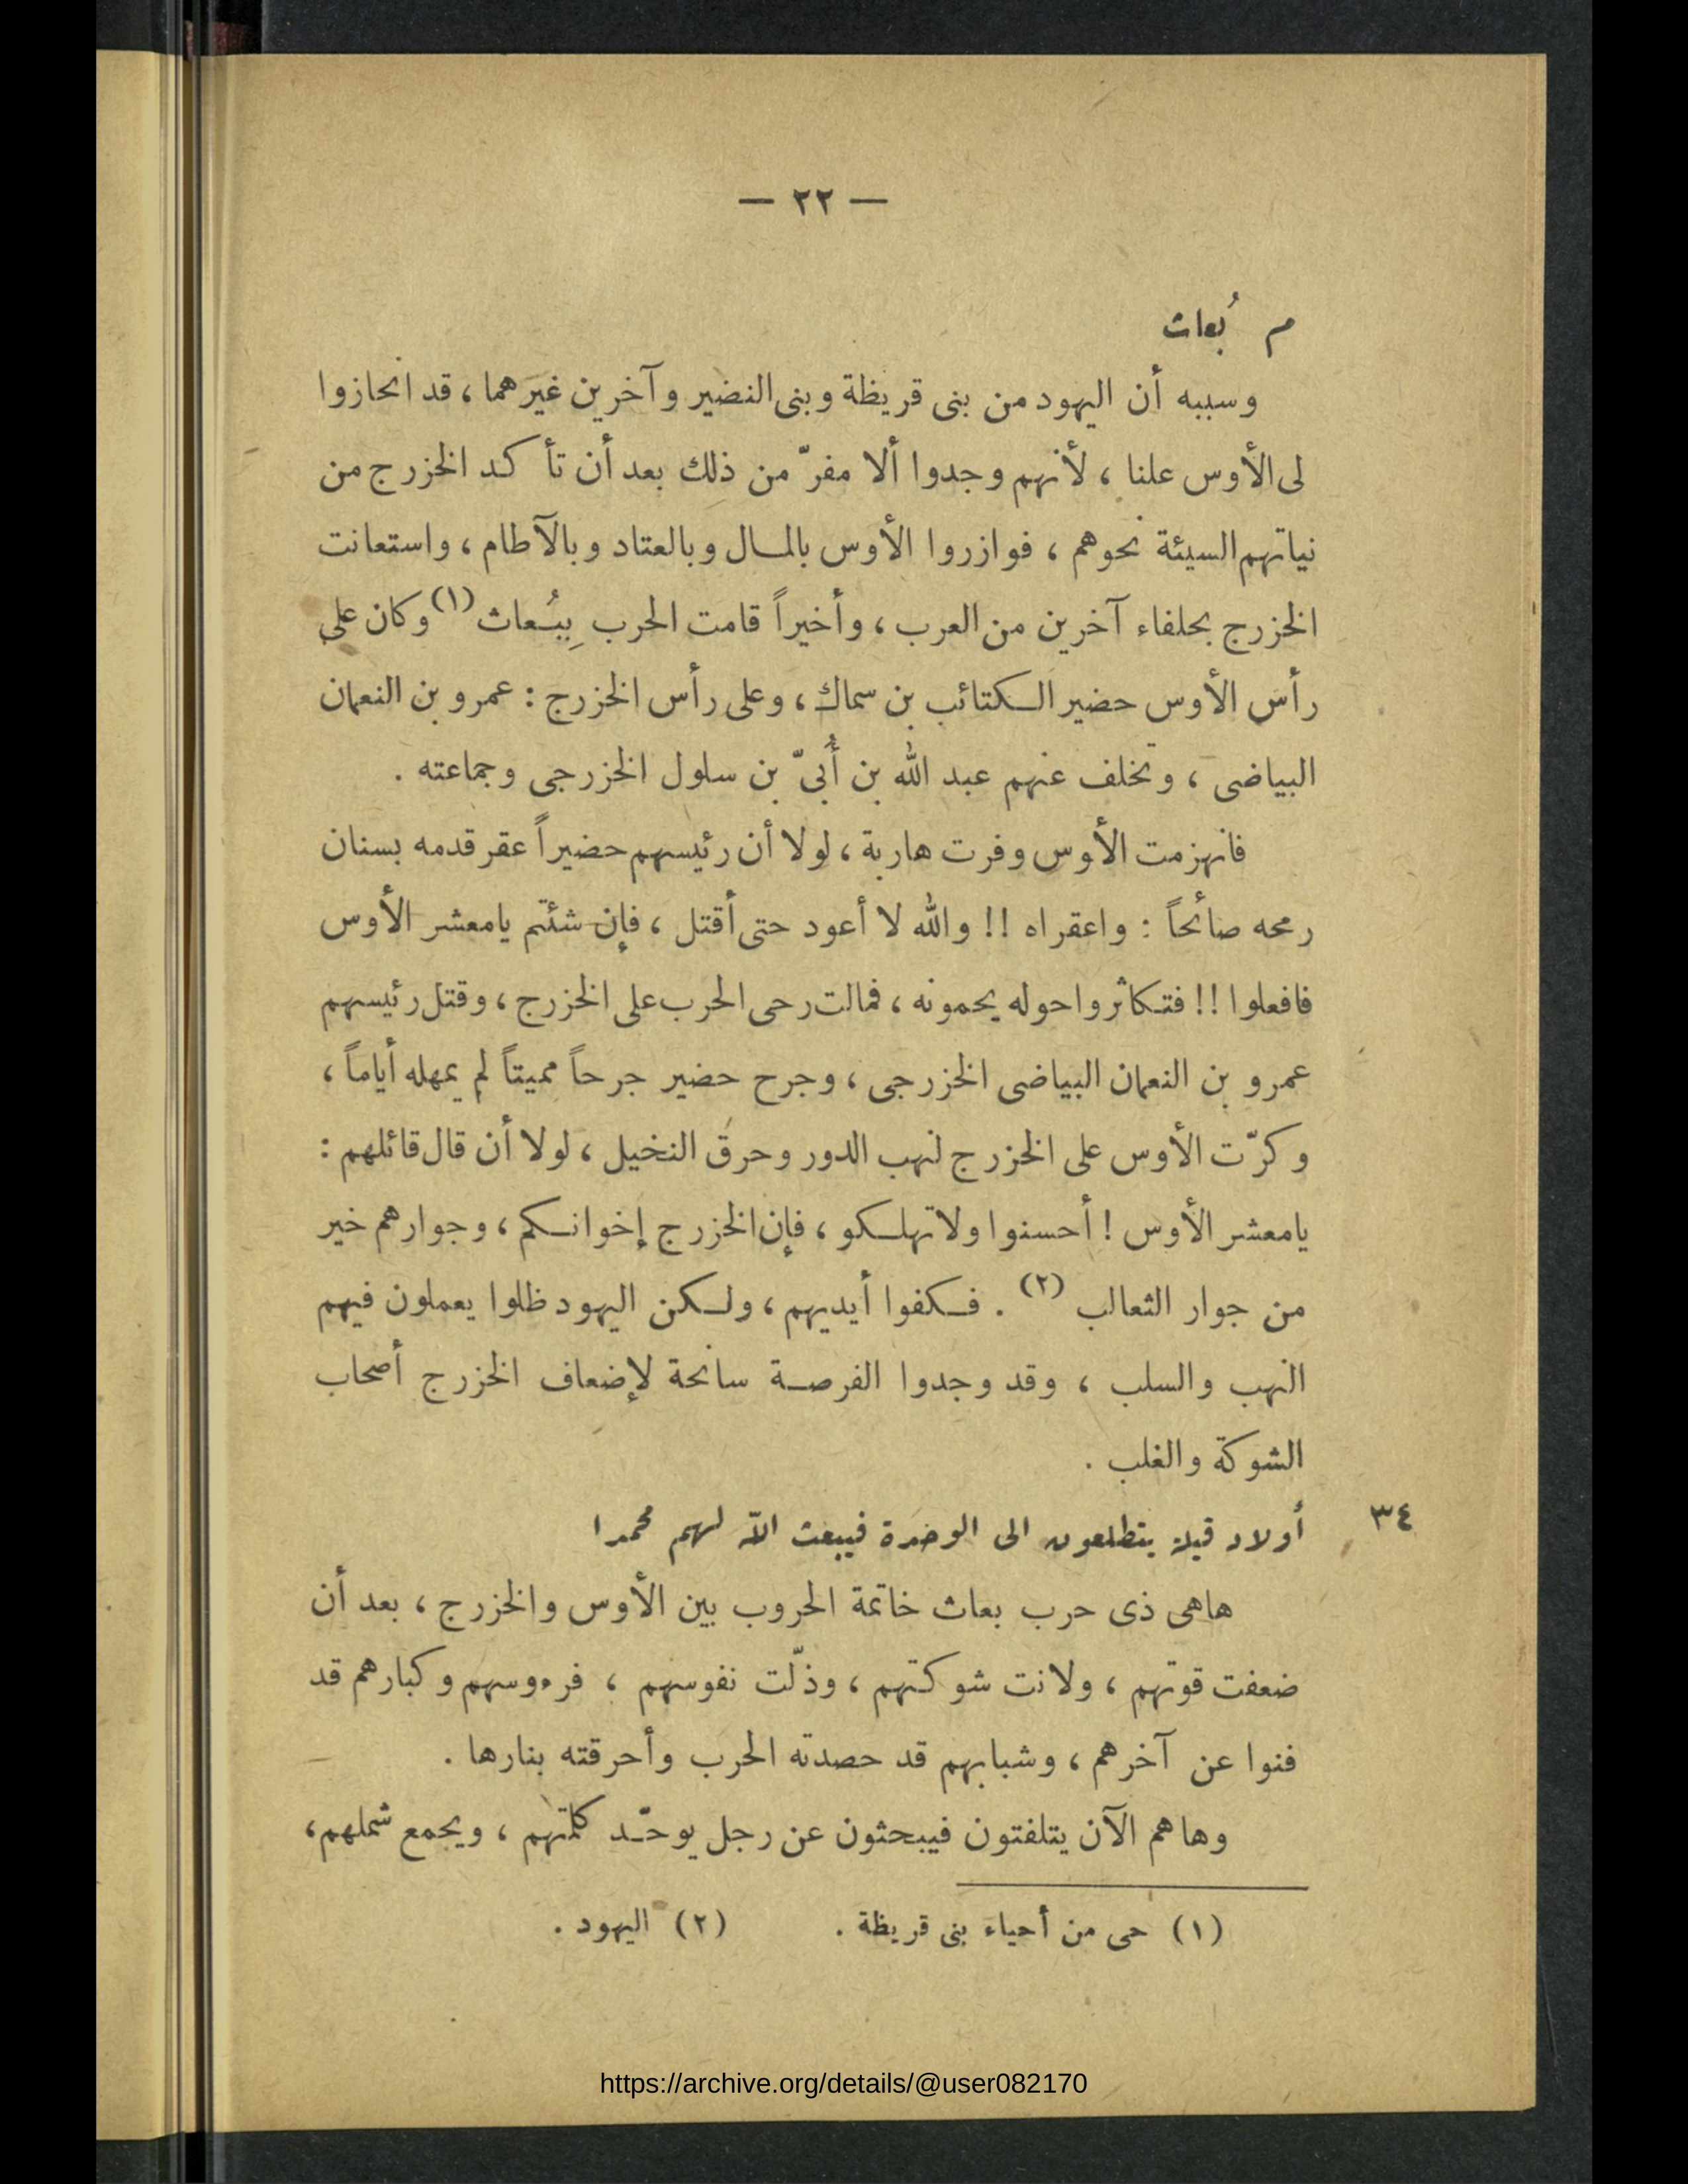 — ٢٢ —
م بُعاث
وسببه أن اليهود من بنى قريظة وبنى النضير وآخرين غيرهما ، قد انحازوا
لى الأوس علنا ، لأنهم وجدوا ألا مفرّ من ذلك بعد أن تأكد الخزرج من
نياتهم السيئة نحوهم ، فوازروا الأوس بالمال وبالعتاد وبالآطام ، واستعانت
الخزرج بحلفاء آخرين من العرب ، وأخيراً قامت الحرب بِبُعاث (١) وكان على
رأس الأوس حضير الكتائب بن سماك ، وعلى رأس الخزرج : عمرو بن النعمان
البياضى ، وتخلف عنهم عبد الله بن أُبىّ بن سلول الخزرجى وجماعته .
فانهزمت الأوس وفرت هاربة ، لولا أن رئيسهم حضيراً عقر قدمه بسنان
رمحه صائحاً : واعقراه !! والله لا أعود حتى أقتل ، فإن شئتم يامعشر الأوس
فافعلوا !! فتكاثروا حوله يحمونه ، فمالت رحى الحرب على الخزرج ، وقتل رئيسهم
عمرو بن النعمان البياضى الخزرجى ، وجرح حضير جرحاً مميتاً لم يمهله أياماً ،
وكرّت الأوس على الخزرج لنهب الدور وحرق النخيل ، لولا أن قال قائلهم :
يامعشر الأوس ! أحسنوا ولا تهلكو ، فإن الخزرج إخوانكم ، وجوارهم خير
من جوار الثعالب (٢) . فكفوا أيديهم ، ولكن اليهود ظلوا يعملون فيهم
النهب والسلب ، وقد وجدوا الفرصة سانحة لإضعاف الخزرج أصحاب
الشوكة والغلب .
٣٤ أولاد قيلة يتطلعون الى الوحدة فيبعث الله لهم محمدا
هاهى ذى حرب بعاث خاتمة الحروب بين الأوس والخزرج ، بعد أن
ضعفت قوتهم ، ولانت شوكتهم ، وذلّت نفوسهم ، فرءوسهم وكبارهم قد
فنوا عن آخرهم ، وشبابهم قد حصدته الحرب وأحرقته بنارها .
وهاهم الآن يتلفتون فيبحثون عن رجل يوحّد كلمتهم ، ويجمع شملهم ،
(١) حى من أحياء بنى قريظة . (٢) اليهود .
https://archive.org/details/@user082170